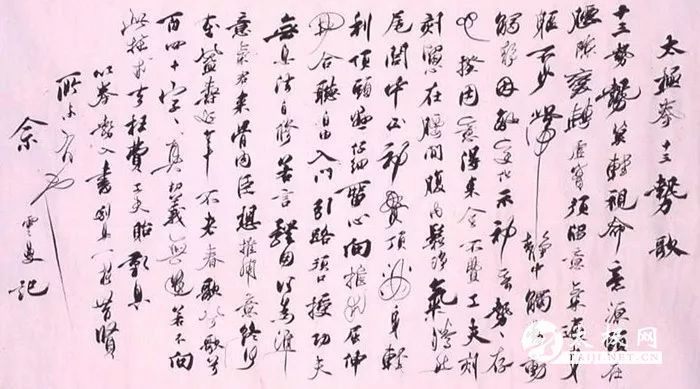 太極拳十三勢歌
十三勢勢莫輕視命意源頭在
腰隙變轉虛實須留意氣遍身
軀不少滯靜中觸動動
觸靜因敵變化示神奇勢勢存
心揆用意得來全不費工夫刻
刻留心在腰間腹內鬆靜氣騰然
尾閭中正神貫頂滿身輕
利頂頭懸仔細留心向推求屈伸
開合聽自由入門引路須口授功夫
無息法自修若言體用何為準
意氣君來骨肉臣想推用意終何
在益壽延年不老春歌兮歌兮
百四十字真切義無遺若不向
此推求去枉費工夫貽歎息
以拳書昔賢
記
太极网
TAIJI.NET.CN